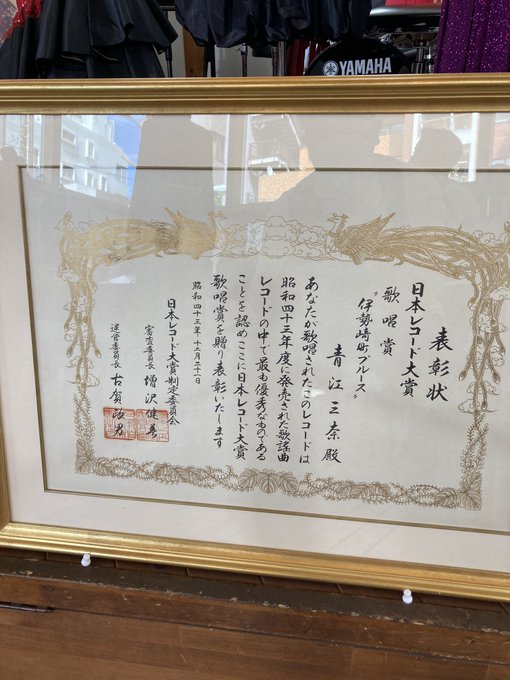 YAMAHA
表彰状
日本レコード大賞
歌唱賞
"伊勢崎町ブルース"
青江三奈殿
あなたが歌唱されたこのレコードは
昭和四十三年度に発売された歌謡曲
レコードの中で最も優秀なものである
ことを認めここに日本レコード大賞
歌唱賞を贈り表彰いたします
昭和四十三年十二月三十一日
日本レコード大賞制定委員会
審査委員長 増沢健美
運営委員長 古賀政男